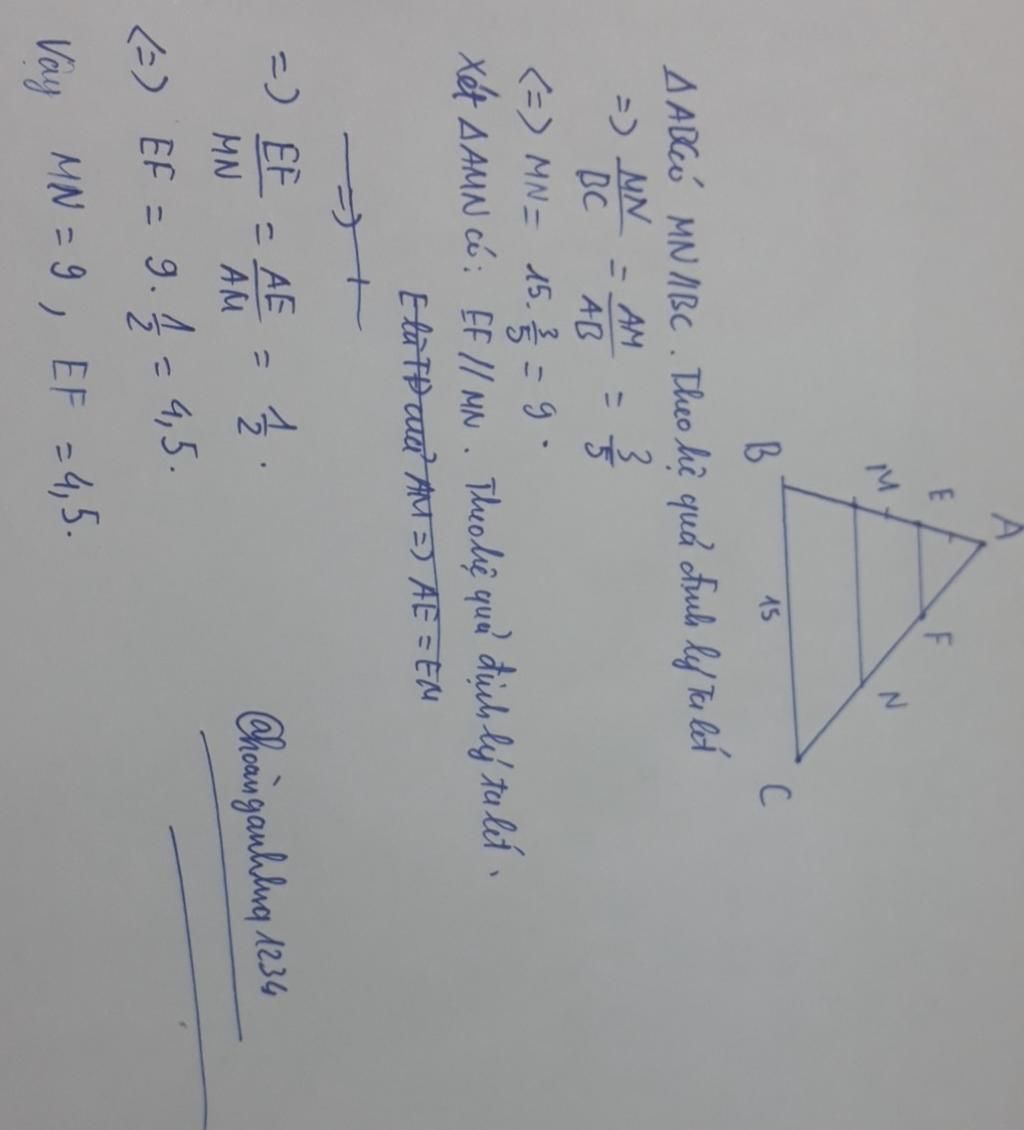 A
E
F
M
N
B
C
15
ΔABC có MN//BC. Theo hệ quả định lý ta lét
=) MN/BC = AM/AB = 3/5
<=) MN = 15.3/5 = 9.
Xét ΔAMN có: EF//MN. Theo hệ quả định lý ta lét.
E là TĐ của AM =) AE = EM
=)
=) EF/MN = AE/AM = 1/2.
<=) EF = 9.1/2 = 4,5.
Vậy MN = 9, EF = 4,5.